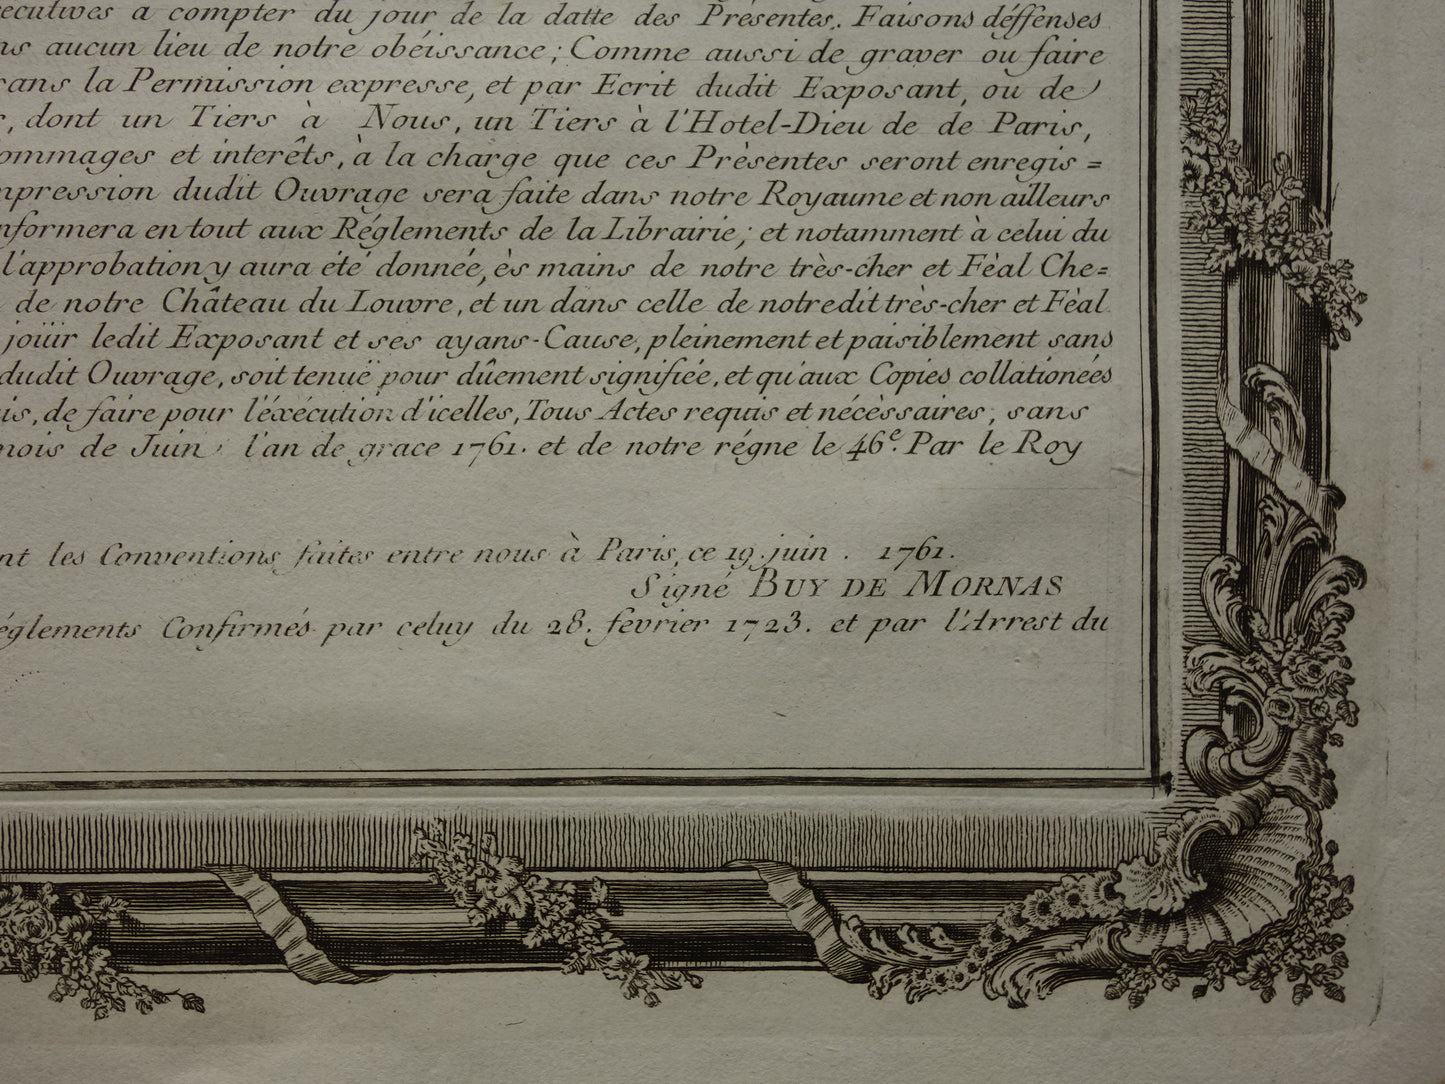 cecutives a compter du jour de la datte des Présentes. Faisons déffenses
ns aucun lieu de notre obéissance; Comme aussi de graver ou faire
sans la Permission expresse, et par Ecrit dudit Exposant, ou de
s, dont un Tiers à Nous, un Tiers à l'Hotel-Dieu de de Paris,
ommages et interêts, à la charge que ces Prèsentes seront enregis =
mpression dudit Ouvrage sera faite dans notre Royaume et non ailleurs
nformera en tout aux Réglements de la Librairie; et notamment à celui du
l'approbation y aura été donnée, ès mains de notre très-cher et Fèal Che=
de notre Château du Louvre, et un dans celle de notredit très-cher et Fèal
joüir ledit Exposant et ses ayans-Cause, pleinement et paisiblement sans
dudit Ouvrage, soit tenuë pour dûement signifiée, et qu'aux Copies collationeés
is, de faire pour l'éxécution d'icelles, Tous Actes requis et nécèssaires, sans
mois de Juin l'an de grace 1761. et de notre régne le 46e. Par le Roy
nt les Conventions faites entre nous à Paris, ce 19. juin. 1761.
Signé BUY DE MORNAS
églements Confirmés par celuy du 28. fevrier 1723. et par l'Arrest du